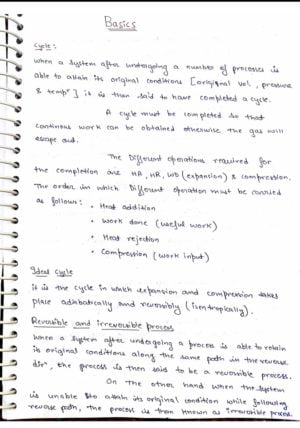 Basics
Cycle :
When a system after undergoing a number of processes is
able to attain its original conditions [original vol , pressure
& tempr] it is then said to have completed a cycle.
A cycle must be completed so that
continous work can be obtained otherwise the gas will
escape out.
The Different operations required for
the completion are HA, HR, WD (expansion) & compression.
The order in which Different operation must be carried
as follows :
• Heat addition
• Work done (useful work)
• Heat rejection
• Compression (work input)
Ideal cycle
it is the cycle in which expansion and compression takes
place adibatically and reversibly (isentropically).
Reversible and irreversible process
When a system after undergoing a process is able to retain
its original conditions along the same path in the reverse
dirn, the process is then said to be a reversible process.
On the other hand when the system
is unable to attain its original condition while following
reverse path, the process is then known as irreversible process